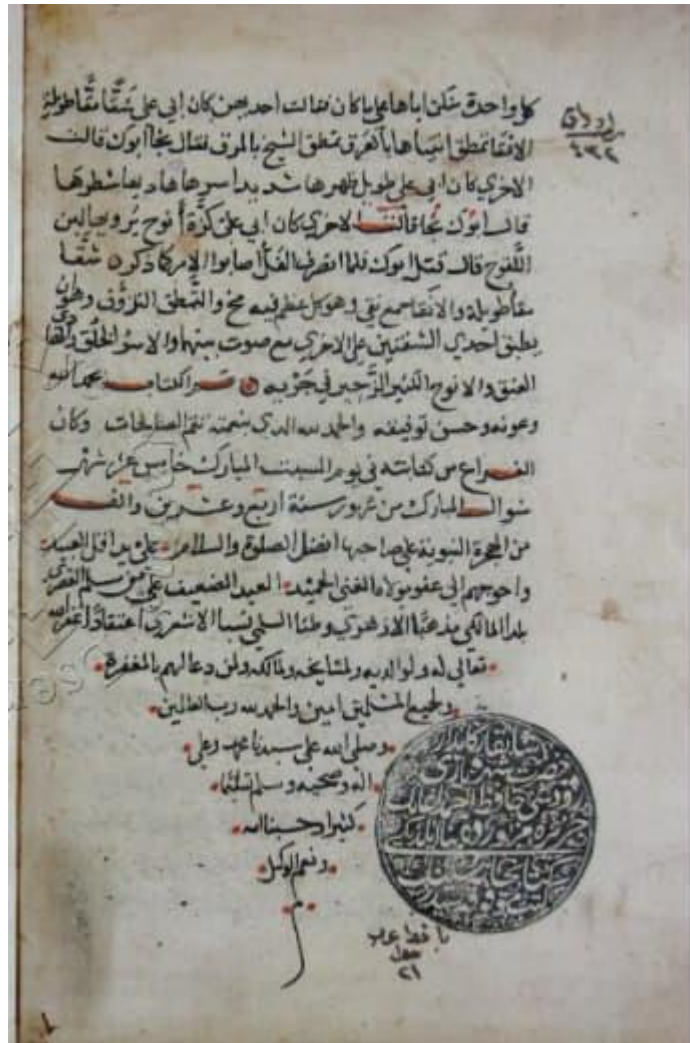 كل واحدة منكن اباها على ما كان فقالت احديهن كان ابي على شقا مقا طويلة
الانقا تمطق انثياها بالعرق تمطق الشيخ بالمرق فقال نجا ابوك قالت
الاخرى كان ابي على طويل ظهرها شديد اسرها هاديها شطرها
قال ابوك نجا قالت الاخرى كان ابي على كزة أنوح يرويها لبن
اللقوح قال قتل ابوك فلما انصرف الفل اصابوا الامر كما ذكر شقا
مقا طويلة والانقا جمع نقي وهو كل عظم فيه مخ والتمطق التذوق وهو ان
يطبق احدي الشفتين على الاخري مع صوت بينهما والاسر الخلق
العنق والانوح الكثير الزحير في جريه تم الكتاب بحمد الله
وعونه وحسن توفيقه والحمد لله الذي بنعمته تتم الصالحات وكان
الفراغ من كتابته في يوم السبت المبارك خامس عشر شهر
شوال المبارك من شهور سنة اربع وعشرين والف
من الهجرة النبوية على صاحبها افضل الصلوة والسلام على يد اقل العبيد
واحوجهم الى عفو مولاه الغني الحميد العبد الضعيف علي بن سلم
بلدا المالكي مذهبا الازهري وطنا السلمي نسبا الاشعري اعتقادا غفر الله
تعالى له ولوالديه ولمشايخه ولمالكه ولمن دعا لهم بالمغفرة
ولجميع المسلمين امين والحمد لله رب العالمين
وصلى الله على سيدنا محمد وعلى
اله وصحبه وسلم تسليما
كثيرا وحسبنا الله
ونعم الوكيل
م
اوراق
٤٣٢
٢١